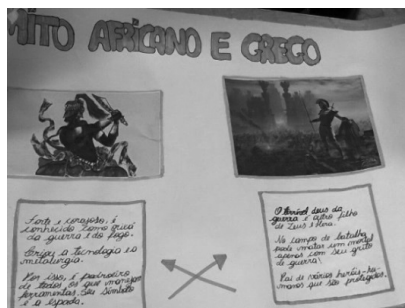 MITO AFRICANO E GREGO
Forte e corajoso, é
conhecido como orixá
da guerra e do fogo.
Criou a tecnologia e a
metalurgia.
Por isso, é padroeiro
de todos os que manejam
ferramentas. Seu símbolo
é a espada.
O terrível deus da
guerra é outro filho
de Zeus e Hera.
No campo de batalha
pode matar um mortal
apenas com seu grito
de guerra!
Pai de vários heróis-hu-
manos que são protegidos,